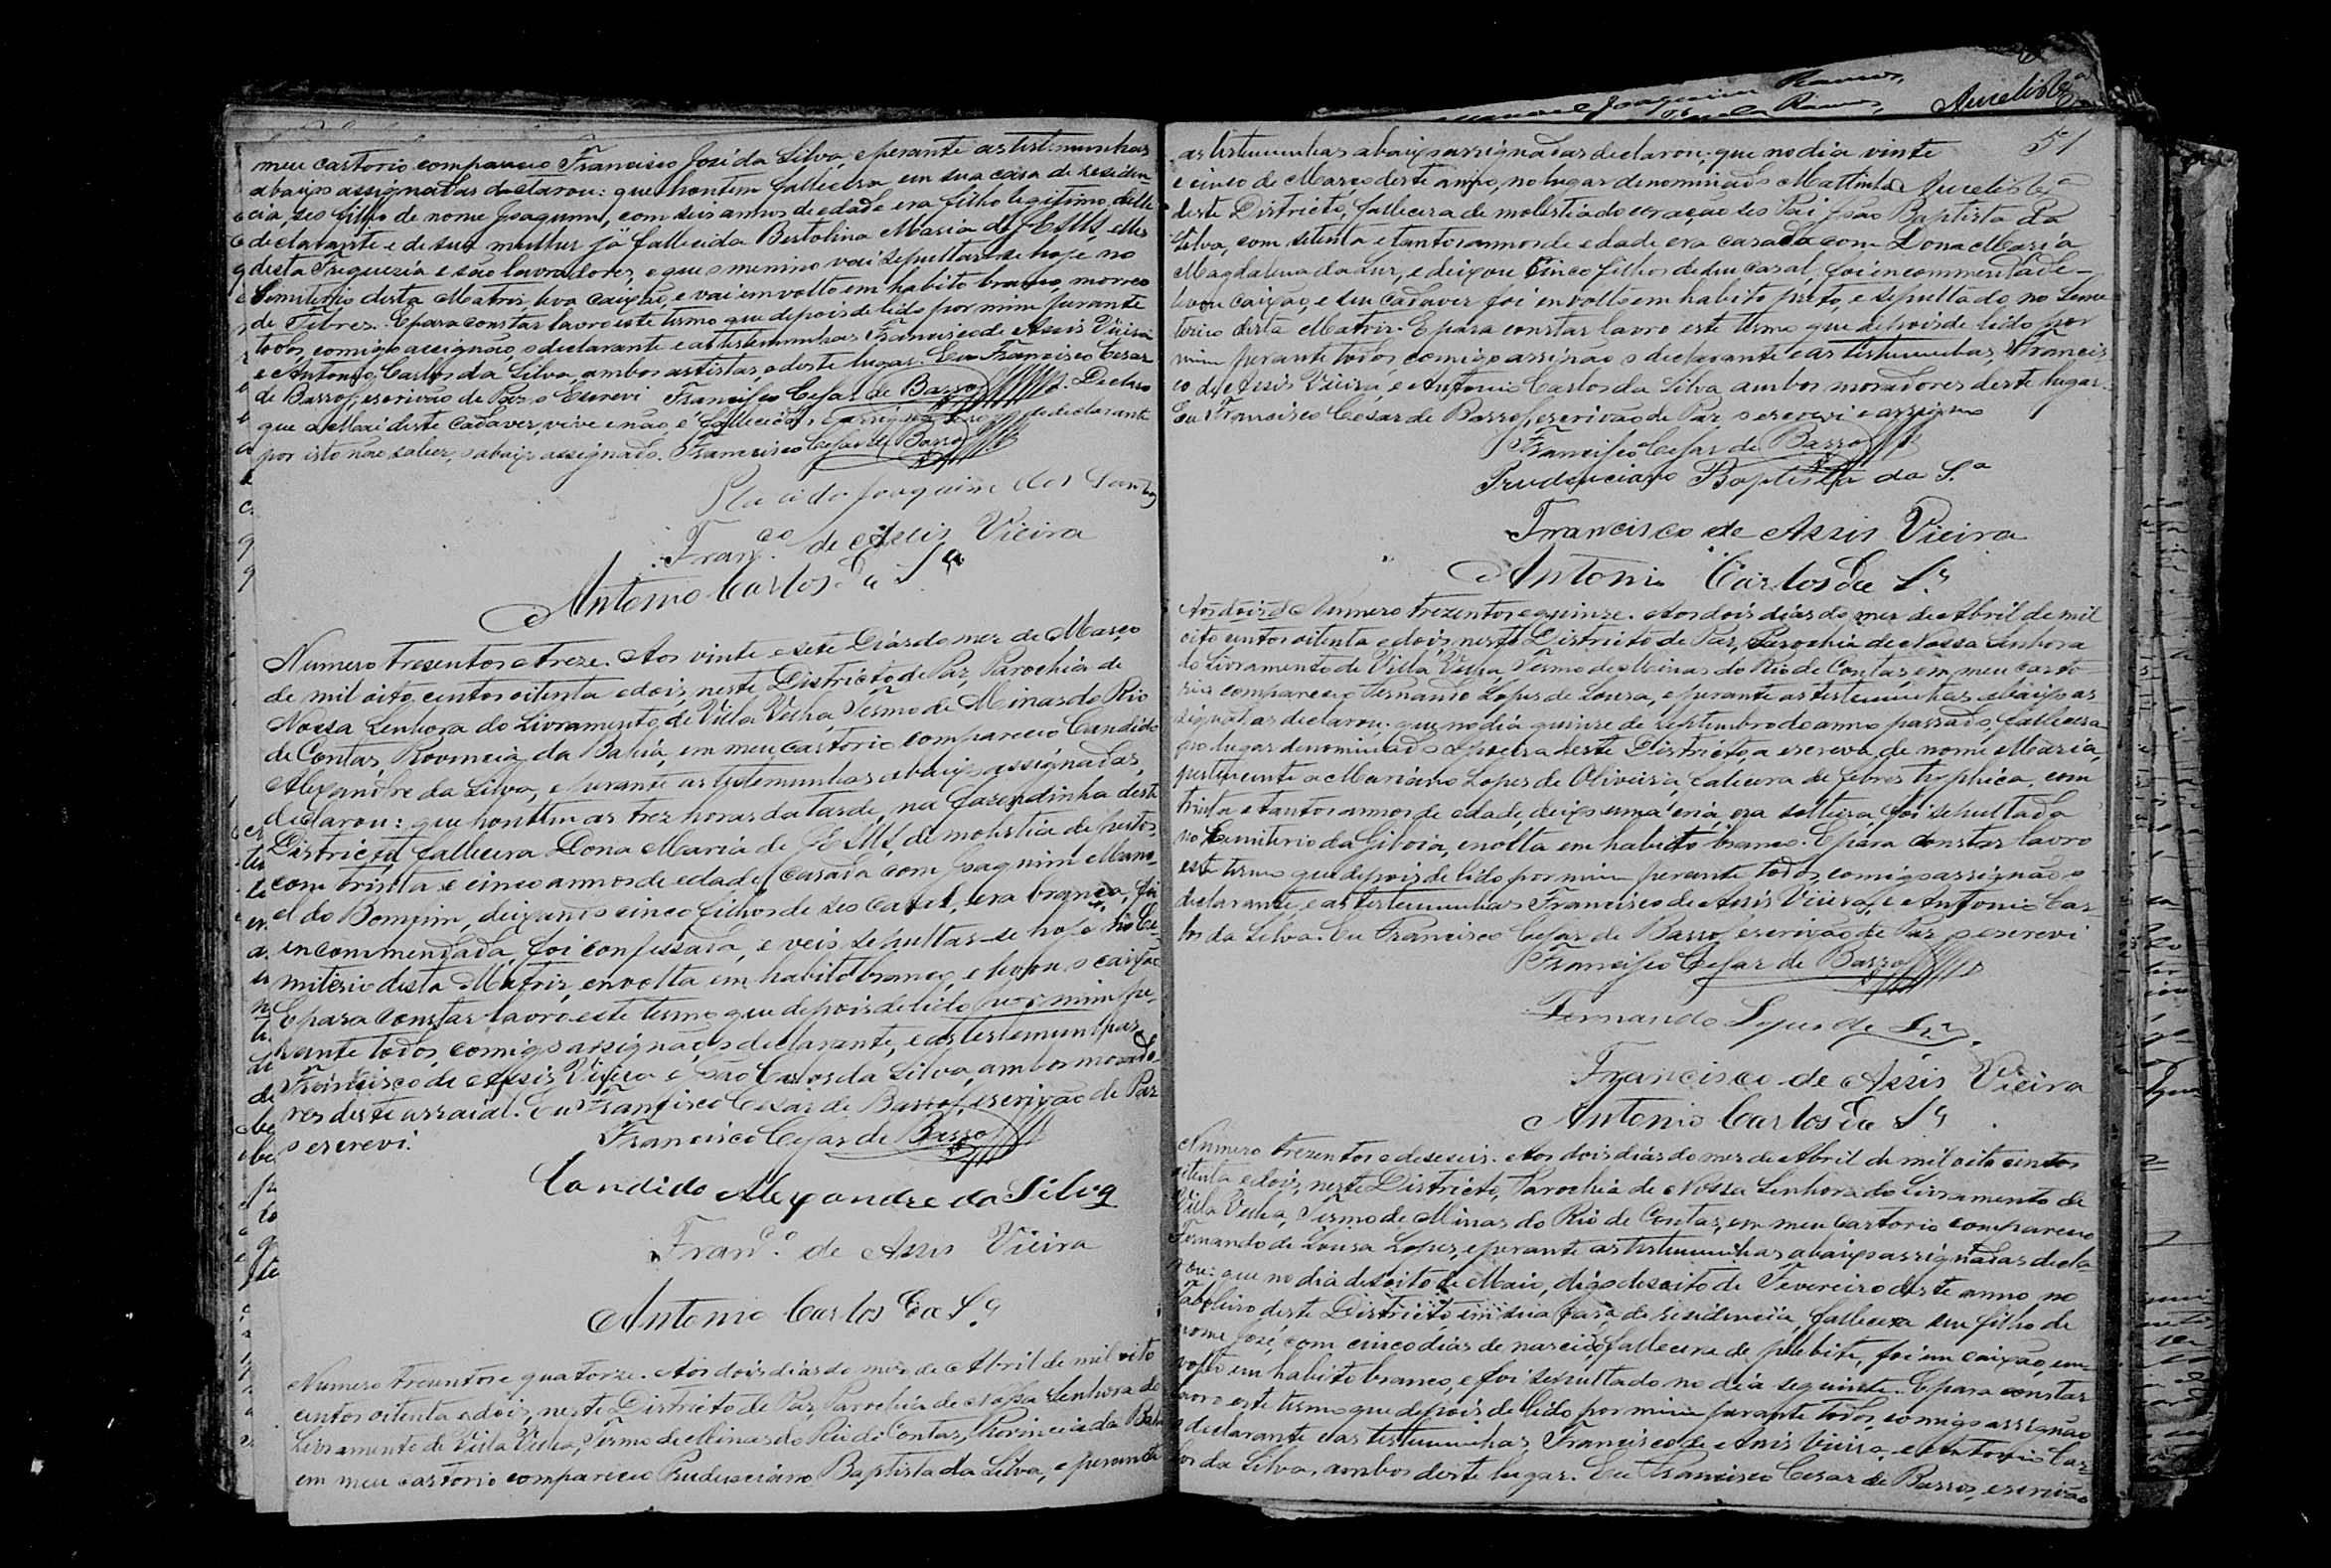 meu cartorio compareceo Francisco José da Silva, e perante as testemunhas
abaixo assignadas declarou: que hontem fallecera em sua casa de residen
cia, seo filho de nome Joaquim, com seis annos de edade era filho legitimo, delle
declarante e de sua mulher já fallecida Bertolina Maria de JESUS, elles
desta Freguezia e são lavradores, e que o menino vai sepultar-se hoje no
Semiterio desta Matriz, leva caixão, e vai emvolto em habito branco, morreo
de Febres. E para constar lavro este termo que depois de lido por mim perante
todos, comigo assignão, o declarante e as testemunhas Francisco de Assis Vieira
e Antonio Carlos da Silva, ambos artistas, e deste lugar. Eu Francisco Cesar
de Barros, escrivão de Paz o Escrevi Francisco Cesar de Barros. Declaro
que a Mai deste Cadaver, vive e não é fallecida, e assigna a rogo do declarante
por isto não saber, o abaixo assignado. Francisco Cesar de Barros
Placido Joaquim dos Santos
Fran.co de Assis Vieira
Antonio Carlos da S.a
Numero tresentos e treze. Aos vinte e sete Dias do mez de Março
de mil oito centos oitenta e dois, neste Districto de Paz, Parochia de
Nossa Senhora do Livramento, de Villa Velha, Termo de Minas do Rio
de Contas, Provincia da Bahia, em meu cartorio compareceo Candido
Alexandre da Silva, e perante as testemunhas abaixo assignadas,
declarou: que honttem as trez horas da tarde, na fazendinha deste
Districto, fallecera Dona Maria de JESUS, de molestia de peitos,
com trinta e cinco annos de edade, casada com Joaquim Mano-
el do Bomfim, deixando cinco filhos de seo casal, era branca, foi
encommendada, foi confessada, e veis sepultar-se hoje no Ce-
miterio desta Matriz, envolta em habito branco, e levou o caixão
E para constar lavro este termo que depois de lido por mim pe-
rante todos, comigo assignão, o declarante, e as testemunhas
Francisco de Assis Vieira e João Carlos da Silva, ambos morado-
res deste arraial. Eu Francisco Cesar de Barros, escrivão de Paz
o escrevi. Francisco Cesar de Barros
Candido Alexandre da Silva
Fran.co de Assis Vieira
Antonio Carlos da S.a
Numero tresentos e quatorze. Aos dois dias do mez de Abril de mil oito
centos oitenta e dois, neste Districto de Paz, Parochia de Nossa Senhora do
Livramento de Villa Velha, Termo de Minas do Rio de Contas, Provincia da Bahia
em meu cartorio compareceo Prudenciano Baptista da Silva, e perante
Joaquim Ramos
Ramos
Aurelio
51
as testemunhas abaixo assignadas declarou, que no dia vinte
e cinco de Março deste anno, no lugar denominado Mattinha Aurelio
deste Districto, fallecera de molestia do coração seo Pai João Baptista da
Silva, com setenta e tantos annos de edade era casado com Dona Maria
Magdalena da Luz, e deixou Cinco filhos de seu casal, foi incommendado-
levou caixão, e seu cadaver foi envolto em habito preto, e sepultado no Seme
terio desta Matriz. E para constar lavro este termo que depois de lido por
mim perante todos, comigo assinão o declarante e as testemunhas, Francis
co de Assis Vieira, e Antonio Carlos da Silva ambos moradores deste lugar.
Eu Francisco Cesar de Barros, escrivão de Paz o escrevi e assigno
Francisco Cesar de Barros
Prudenciano Baptista da S.a
Francisco de Assis Vieira
Antonio Carlos da S.a
Aos dois d Numero trezentos e quinze. Aos dois dias do mez de Abril de mil
oito centos oitenta e dois, neste Districto de Paz, Parochia de Nossa Senhora
do Livramento de Villa Velha, Termo de Minas do Rio de Contas, em meu carto
rio compareceo Fernando Lopes de Sousa, e perante as testemunhas abaixo as
signadas declarou, que no dia quinze de Septembro do anno passado, fallecera
no lugar denominado deste Districto, a escrava de nome Maria,
pertencente a Mariano Lopes de Oliveira, fallecera de febres typhica, com
trinta e tantos annos de edade, deixo uma cria, era solteira, foi sepultada
no Cemiterio da Giboia, envolta em habito branco. E para constar lavro
este termo que depois de lido por mim perante todos, comigo assignão o
declarante, e as testemunhas Francisco de Assis Vieira, e Antonio Car-
los da Silva. Eu Francisco Cesar de Barros escrivão de Paz o escrevi
Francisco Cesar de Barros
Fernando Lopes de Sz.a
Francisco de Assis Vieira
Antonio Carlos da S.a
Numero trezentos e deseseis. Aos dois dias do mez de Abril de mil oito centos
oitenta e dois, neste Districto, Parochia de Nossa Senhora do Livramento de
Villa Velha, Termo de Minas do Rio de Contas, em meu cartorio compareceo
Fernando de Sousa Lopes, e perante as testemunhas abaixo assignadas decla-
rou: que no dia desoito de Maio, digo desoito de Fevereiro deste anno, no
Taboleiro deste Districto, em sua casa de residencia, fallecera seu filho de
nome José, com cinco dias de nascido, fallecera de phlebite, foi em caixão, em-
volto em habito branco, e foi sepultado no dia seguinte. E para constar
lavro este termo que depois de lido por mim perante todos, comigo assignão
o declarante e as testemunhas, Francisco de Assis Vieira, e Antonio Car-
los da Silva, ambos deste lugar. Eu Francisco Cesar de Barros, escrivão